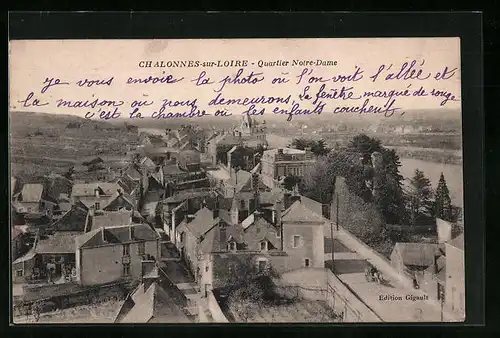 CHALONNES-sur-LOIRE - Quartier Notre-Dame
Je vous envoie la photo où l'on voit l'allée et
la maison ou nous demeurons, la fenêtre marqué de rouge
c'est la chambre ou les enfants couchent
Edition Gigault